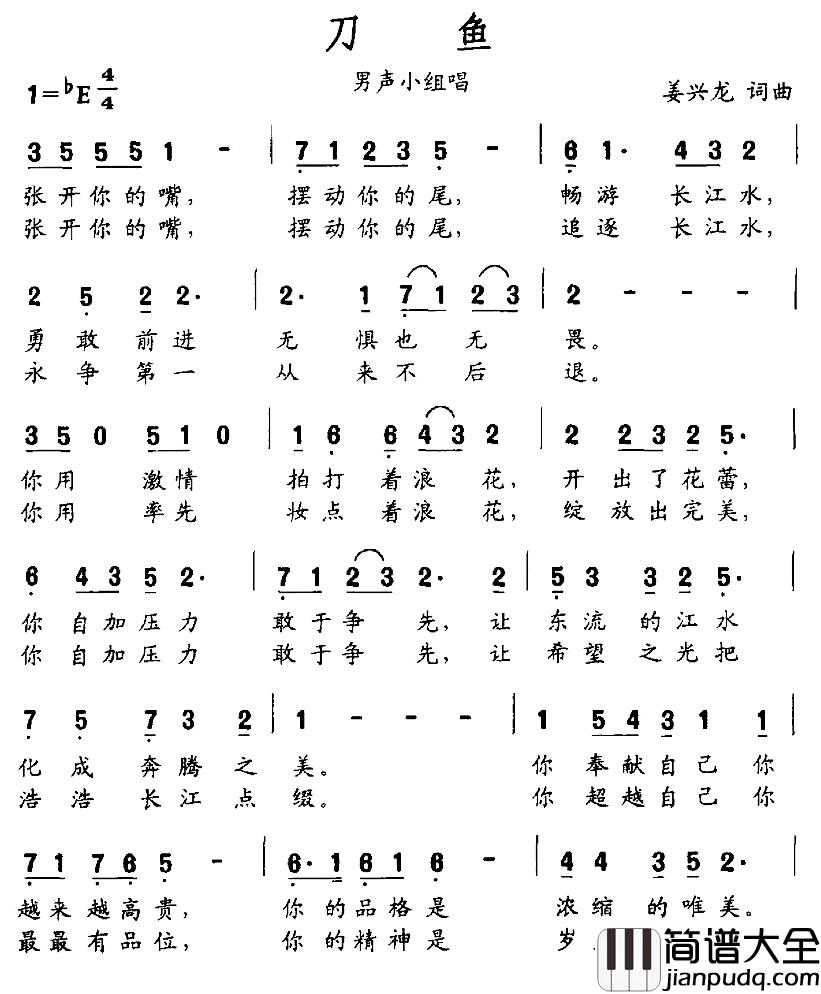 刀 鱼
1=♭E 4/4 男声小组唱 姜兴龙 词曲
3 5 5 5 1 - | 7 1 2 3 5 - | 6 1· 4 3 2 |
张开你的嘴, 摆动你的尾, 畅游 长江水,
张开你的嘴, 摆动你的尾, 追逐 长江水,
2 5 2 2· | 2· 1 7 1 2 3 | 2 - - - |
勇敢前进 无 惧也无 畏。
永争第一 从 来不后 退。
3 5 0 5 1 0 | 1 6 6 4 3 2 | 2 2 3 2 5· |
你用 激情 拍打着浪花, 开出了花蕾,
你用 率先 妆点着浪花, 绽放出完美,
6 4 3 5 2· | 7 1 2 3 2· 2 | 5 3 3 2 5· |
你自加压力 敢于争先, 让 东流的江水
你自加压力 敢于争先, 让 希望之光把
7 5 7 3 2 | 1 - - - | 1 5 4 3 1 1 |
化成奔腾之 美。 你奉献自己你
浩浩长江点 缀。 你超越自己你
7 1 7 6 5 - | 6· 1 1 6 1 6 - | 4 4 3 5 2· |
越来越高贵, 你的品格是 浓缩的唯美。
最最有品位, 你的精神是 岁
简谱大全
jianpudq.com